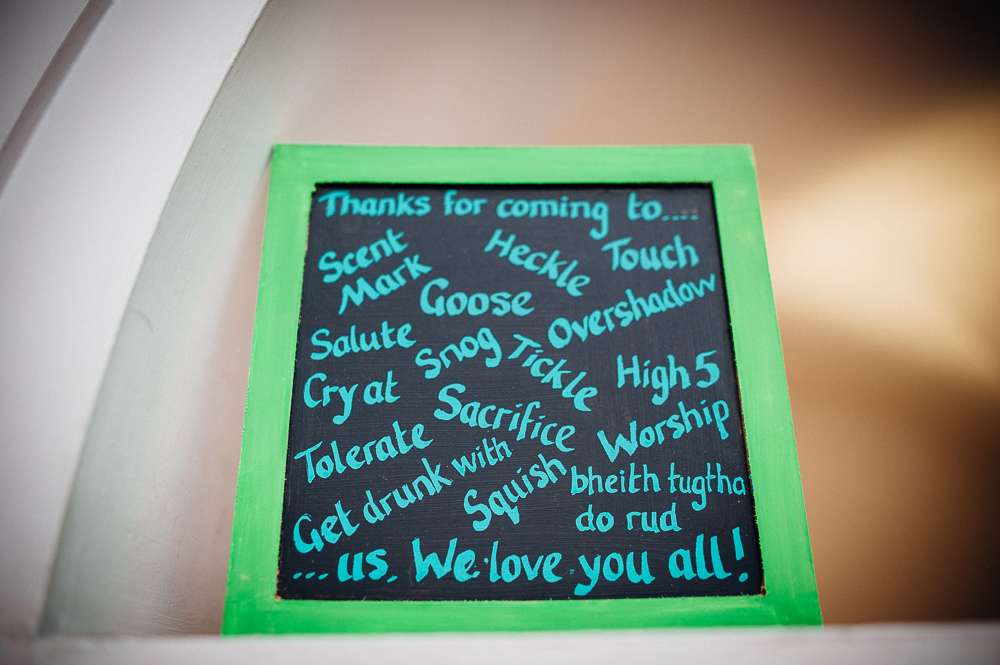 Thanks for coming to....
Scent
Mark
Heckle
Touch
Goose
Overshadow
Salute
Snog
Tickle
High 5
Cry at
Sacrifice
Worship
Tolerate
Get drunk with
Squish
bheith tugtha
do rud
... us. We love you all!